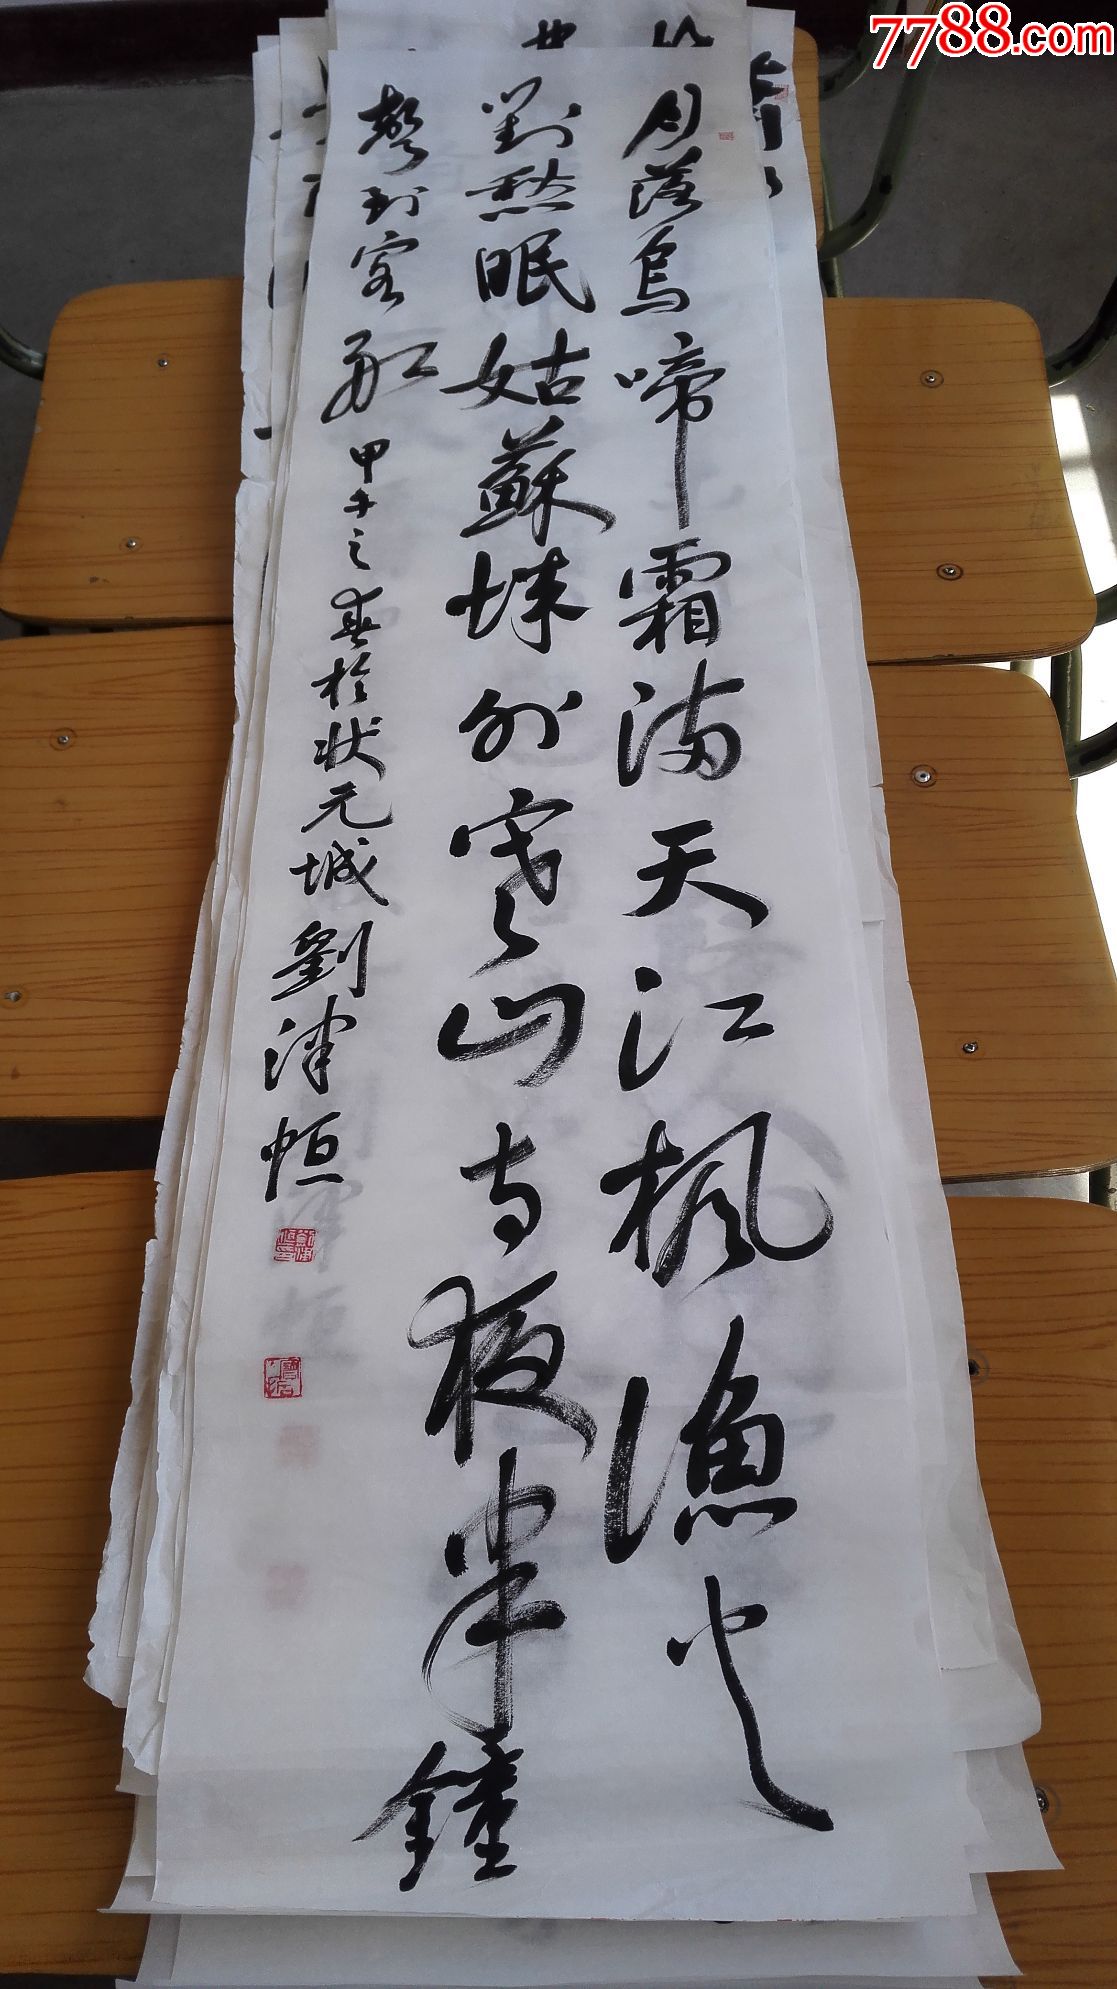 7788.com
月落烏啼霜满天江枫漁火
對愁眠姑蘇城外寒山寺夜半鐘
聲到客船甲午之春於状元城劉津恒